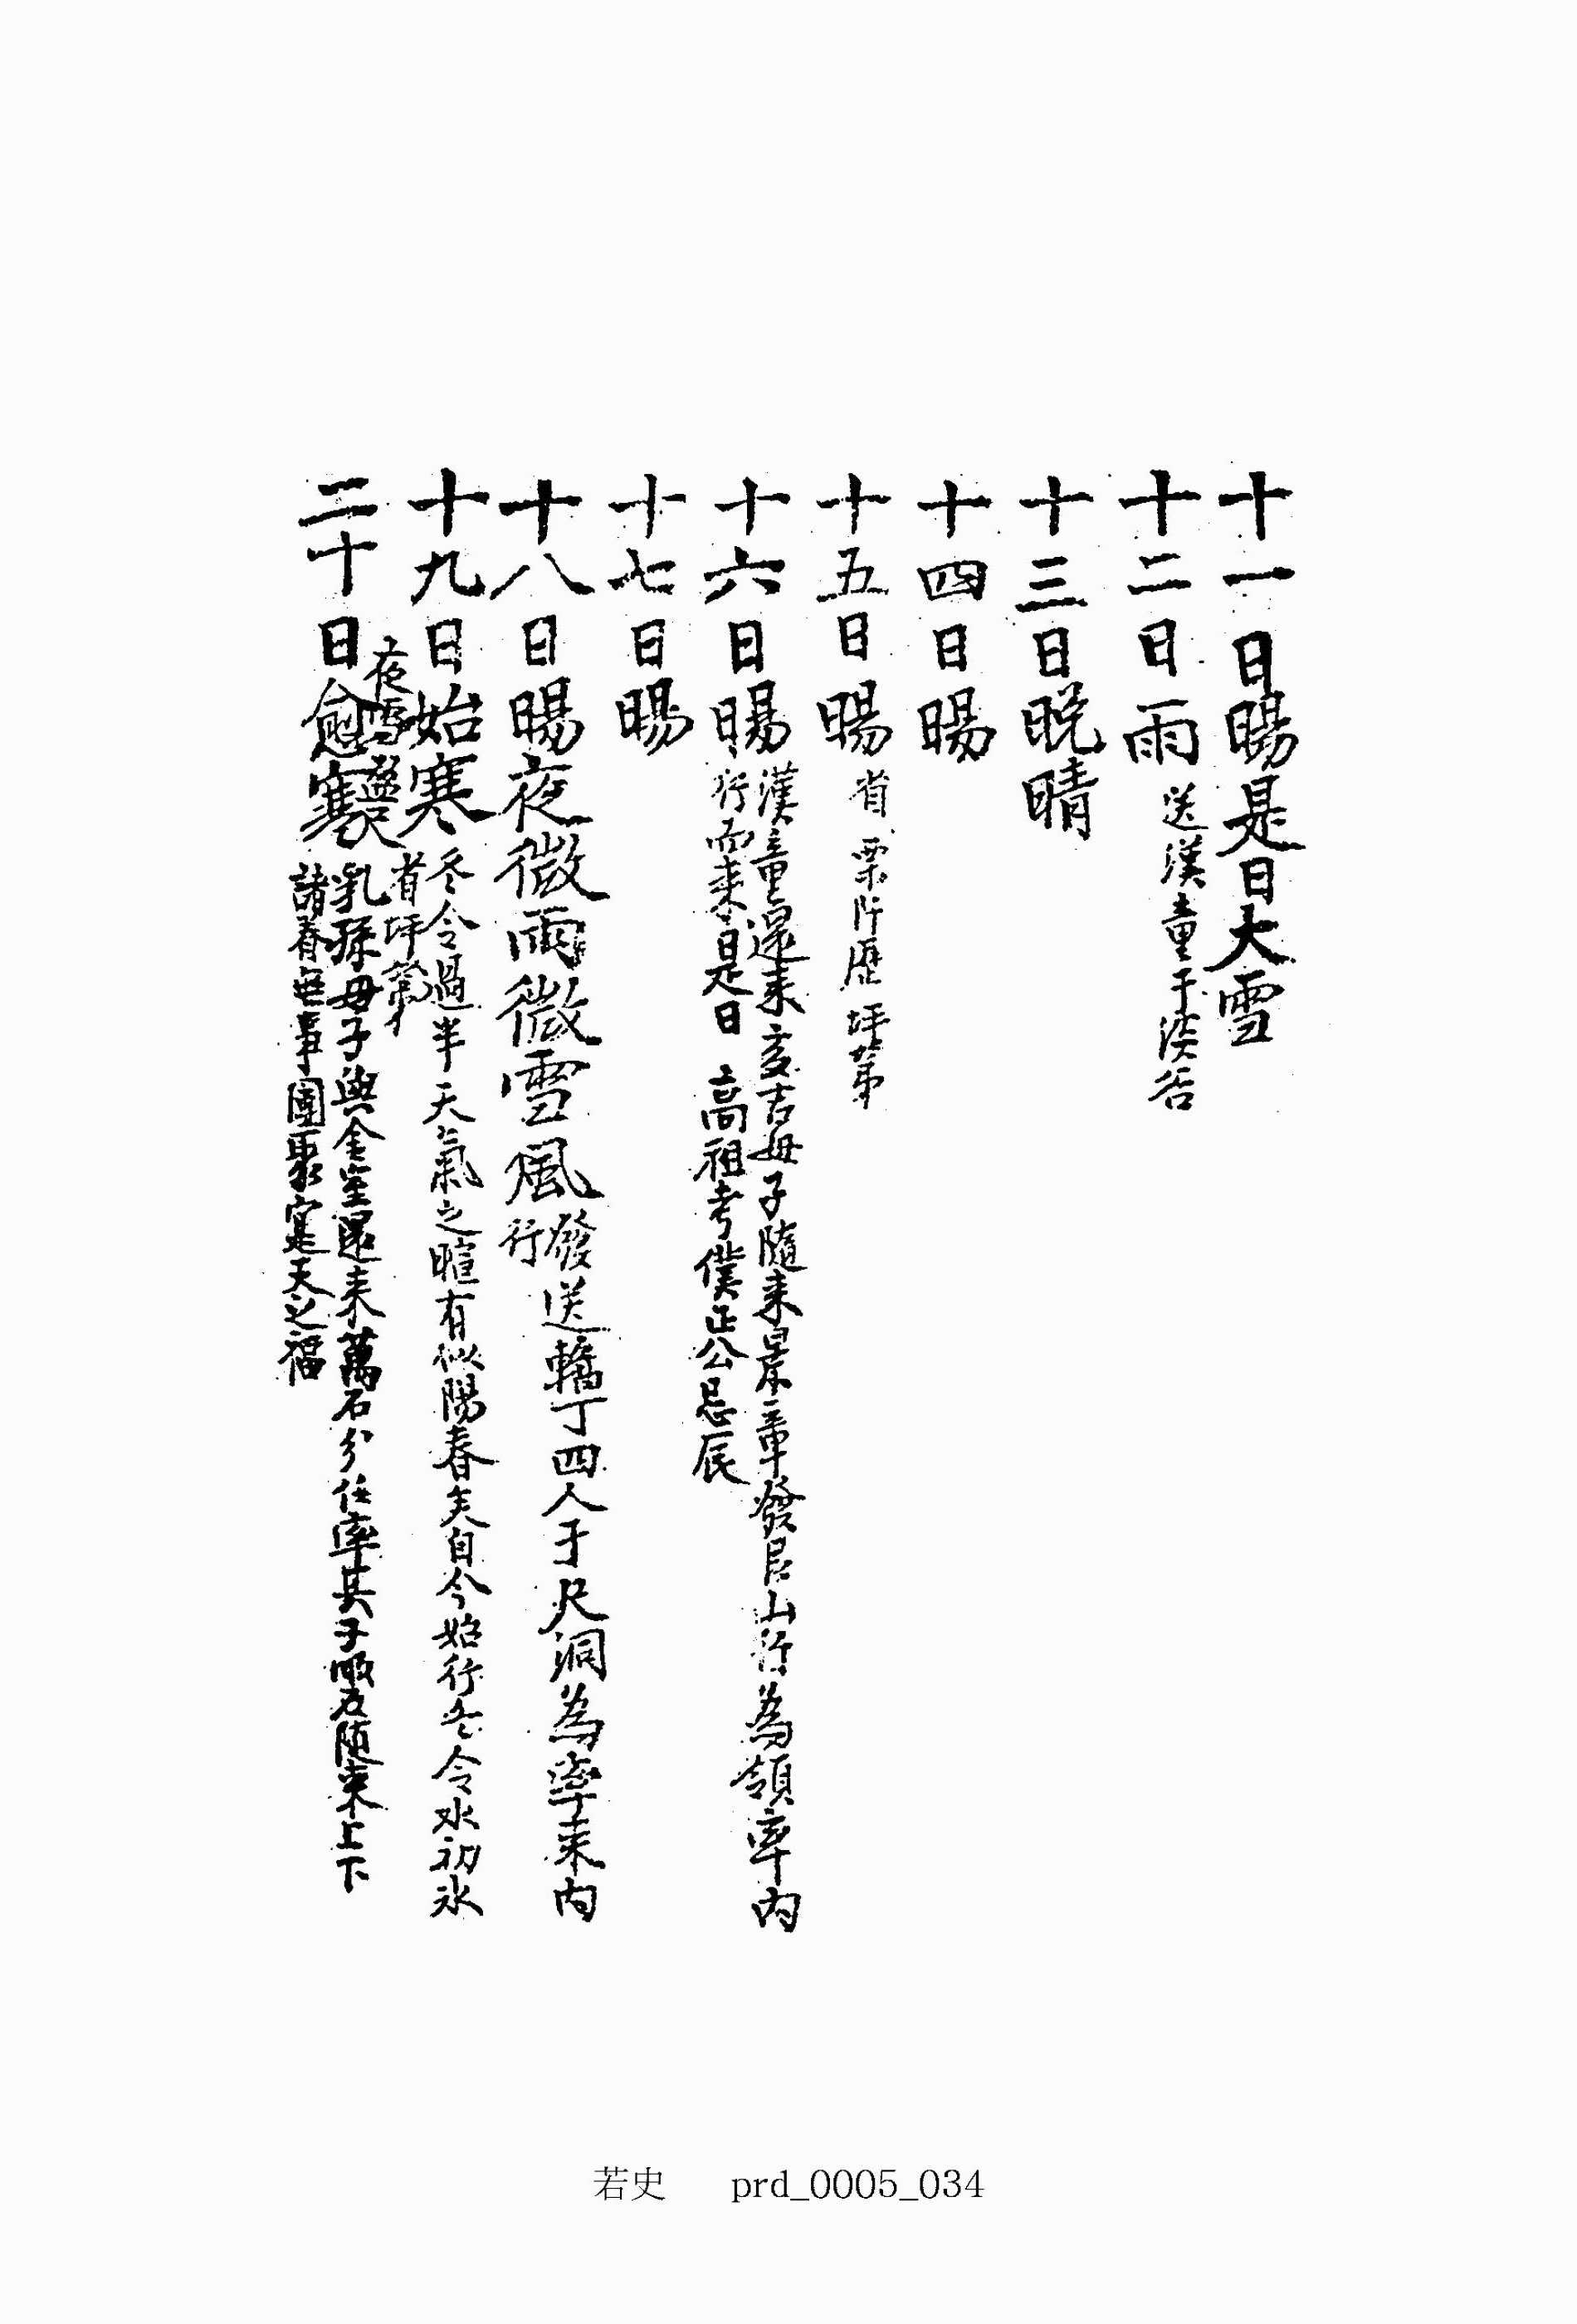 十一日暘是日大雪
十二日雨 送漢童于淡谷
十三日晩晴
十四日暘
十五日暘 省栗阡歷坪第
十六日暘 漢童還来亥吉母子隨来景章發呂山行為領率内
行而来是日 高祖考僕正公忌辰
十七日暘
十八日暘夜微雨微雪風 發送轎丁四人于尺洞為率来内
行
十九日始寒 冬令過半天氣之暄有似陽春矣自今始行冬令水初氷
省坪第
夜雪
二十日愈寒 乳孫母子與金室還来萬石分任率其子隨来上下
諸眷無事團聚寔天之福
若史 prd_0005_034